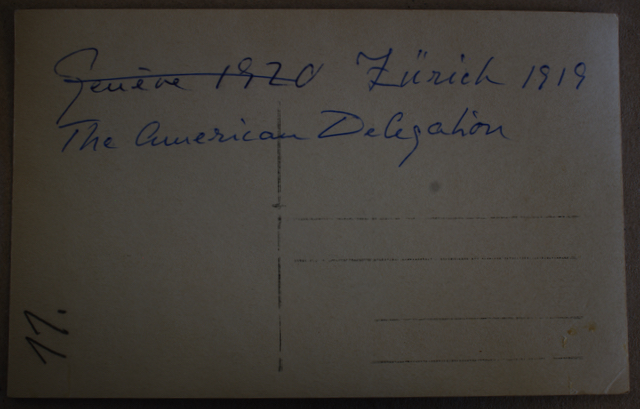 Genève 1920 Zürich 1919
The American Delegation
11.